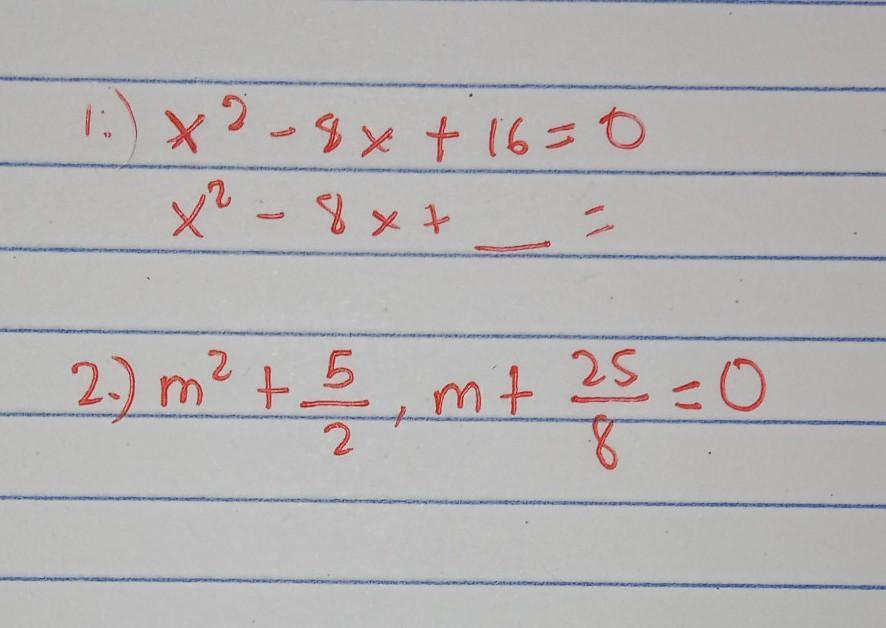 1.) x² - 8x + 16 = 0
x² - 8x + __ =
2.) m² + 5/2, m + 25/8 = 0